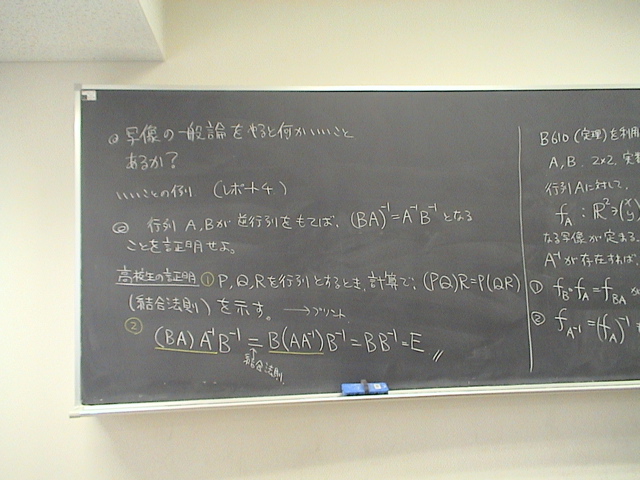 写像の一般論をやると何かいいこと
あるか?
いいことの例 (レポート4)
行列 A, Bが逆行列をもてば, (BA)⁻¹=A⁻¹B⁻¹となる
ことを証明せよ。
高校生の証明 ① P, Q, Rを行列とするとき, 計算で, (PQ)R=P(QR)
(結合法則)を示す。 → プリント
②
(BA)A⁻¹B⁻¹ = B(AA⁻¹)B⁻¹ = BB⁻¹ = E //
↑
結合法則
B610 (定理)を利用
A, B 2×2, 実数
行列Aに対して,
f_A : ℝ²∋(x y)
なる写像が定まる.
A⁻¹が存在すれば,
① f_B∘f_A = f_BA
② f_A⁻¹ = (f_A)⁻¹